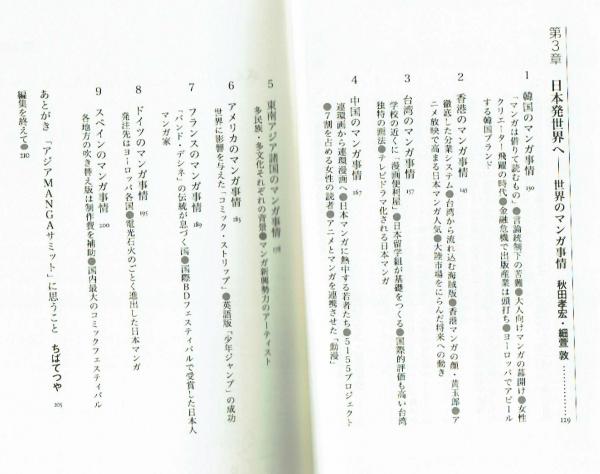 第3章 日本発世界へ――世界のマンガ事情 秋田孝宏・細萱敦…………129
1 韓国のマンガ事情 130
「マンガは借りて読むもの」●言論統制下の苦難●大人向けマンガの幕開け●女性
クリエーター飛躍の時代●金融危機で出版産業は頭打ち●ヨーロッパでアピール
する韓国ブランド
2 香港のマンガ事情 145
徹底した分業システム●台湾から流れ込む海賊版●香港マンガの顔・黄玉郎●ア
ニメ放映で高まる日本マンガ人気●大陸市場をにらんだ将来への動き
3 台湾のマンガ事情 157
学校の近くに「漫画便利屋」●日本留学組が基礎をつくる●国際的評価も高い台湾
独特の画法●テレビドラマ化される日本マンガ
4 中国のマンガ事情 167
連環画から連環漫画へ●日本マンガに熱中する若者たち●5155プロジェクト
●7割を占める女性の読者●アニメとマンガを連携させた「動漫」
5 東南アジア諸国のマンガ事情 178
多民族・多文化それぞれの背景●マンガ新興勢力のアーティスト
6 アメリカのマンガ事情 183
世界に影響を与えた「コミック・ストリップ」●英語版「少年ジャンプ」の成功
7 フランスのマンガ事情 189
「バンド・デシネ」の伝統が息づく国●国際BDフェスティバルで受賞した日本人
マンガ家
8 ドイツのマンガ事情 195
発注先はヨーロッパ各国●電光石火のごとく進出した日本マンガ
9 スペインのマンガ事情 200
各地方の吹き替え版は制作費を補助●国内最大のコミックフェスティバル
あとがき 「アジアMANGAサミット」に思うこと ちばてつや 205
編集を終えて● 210